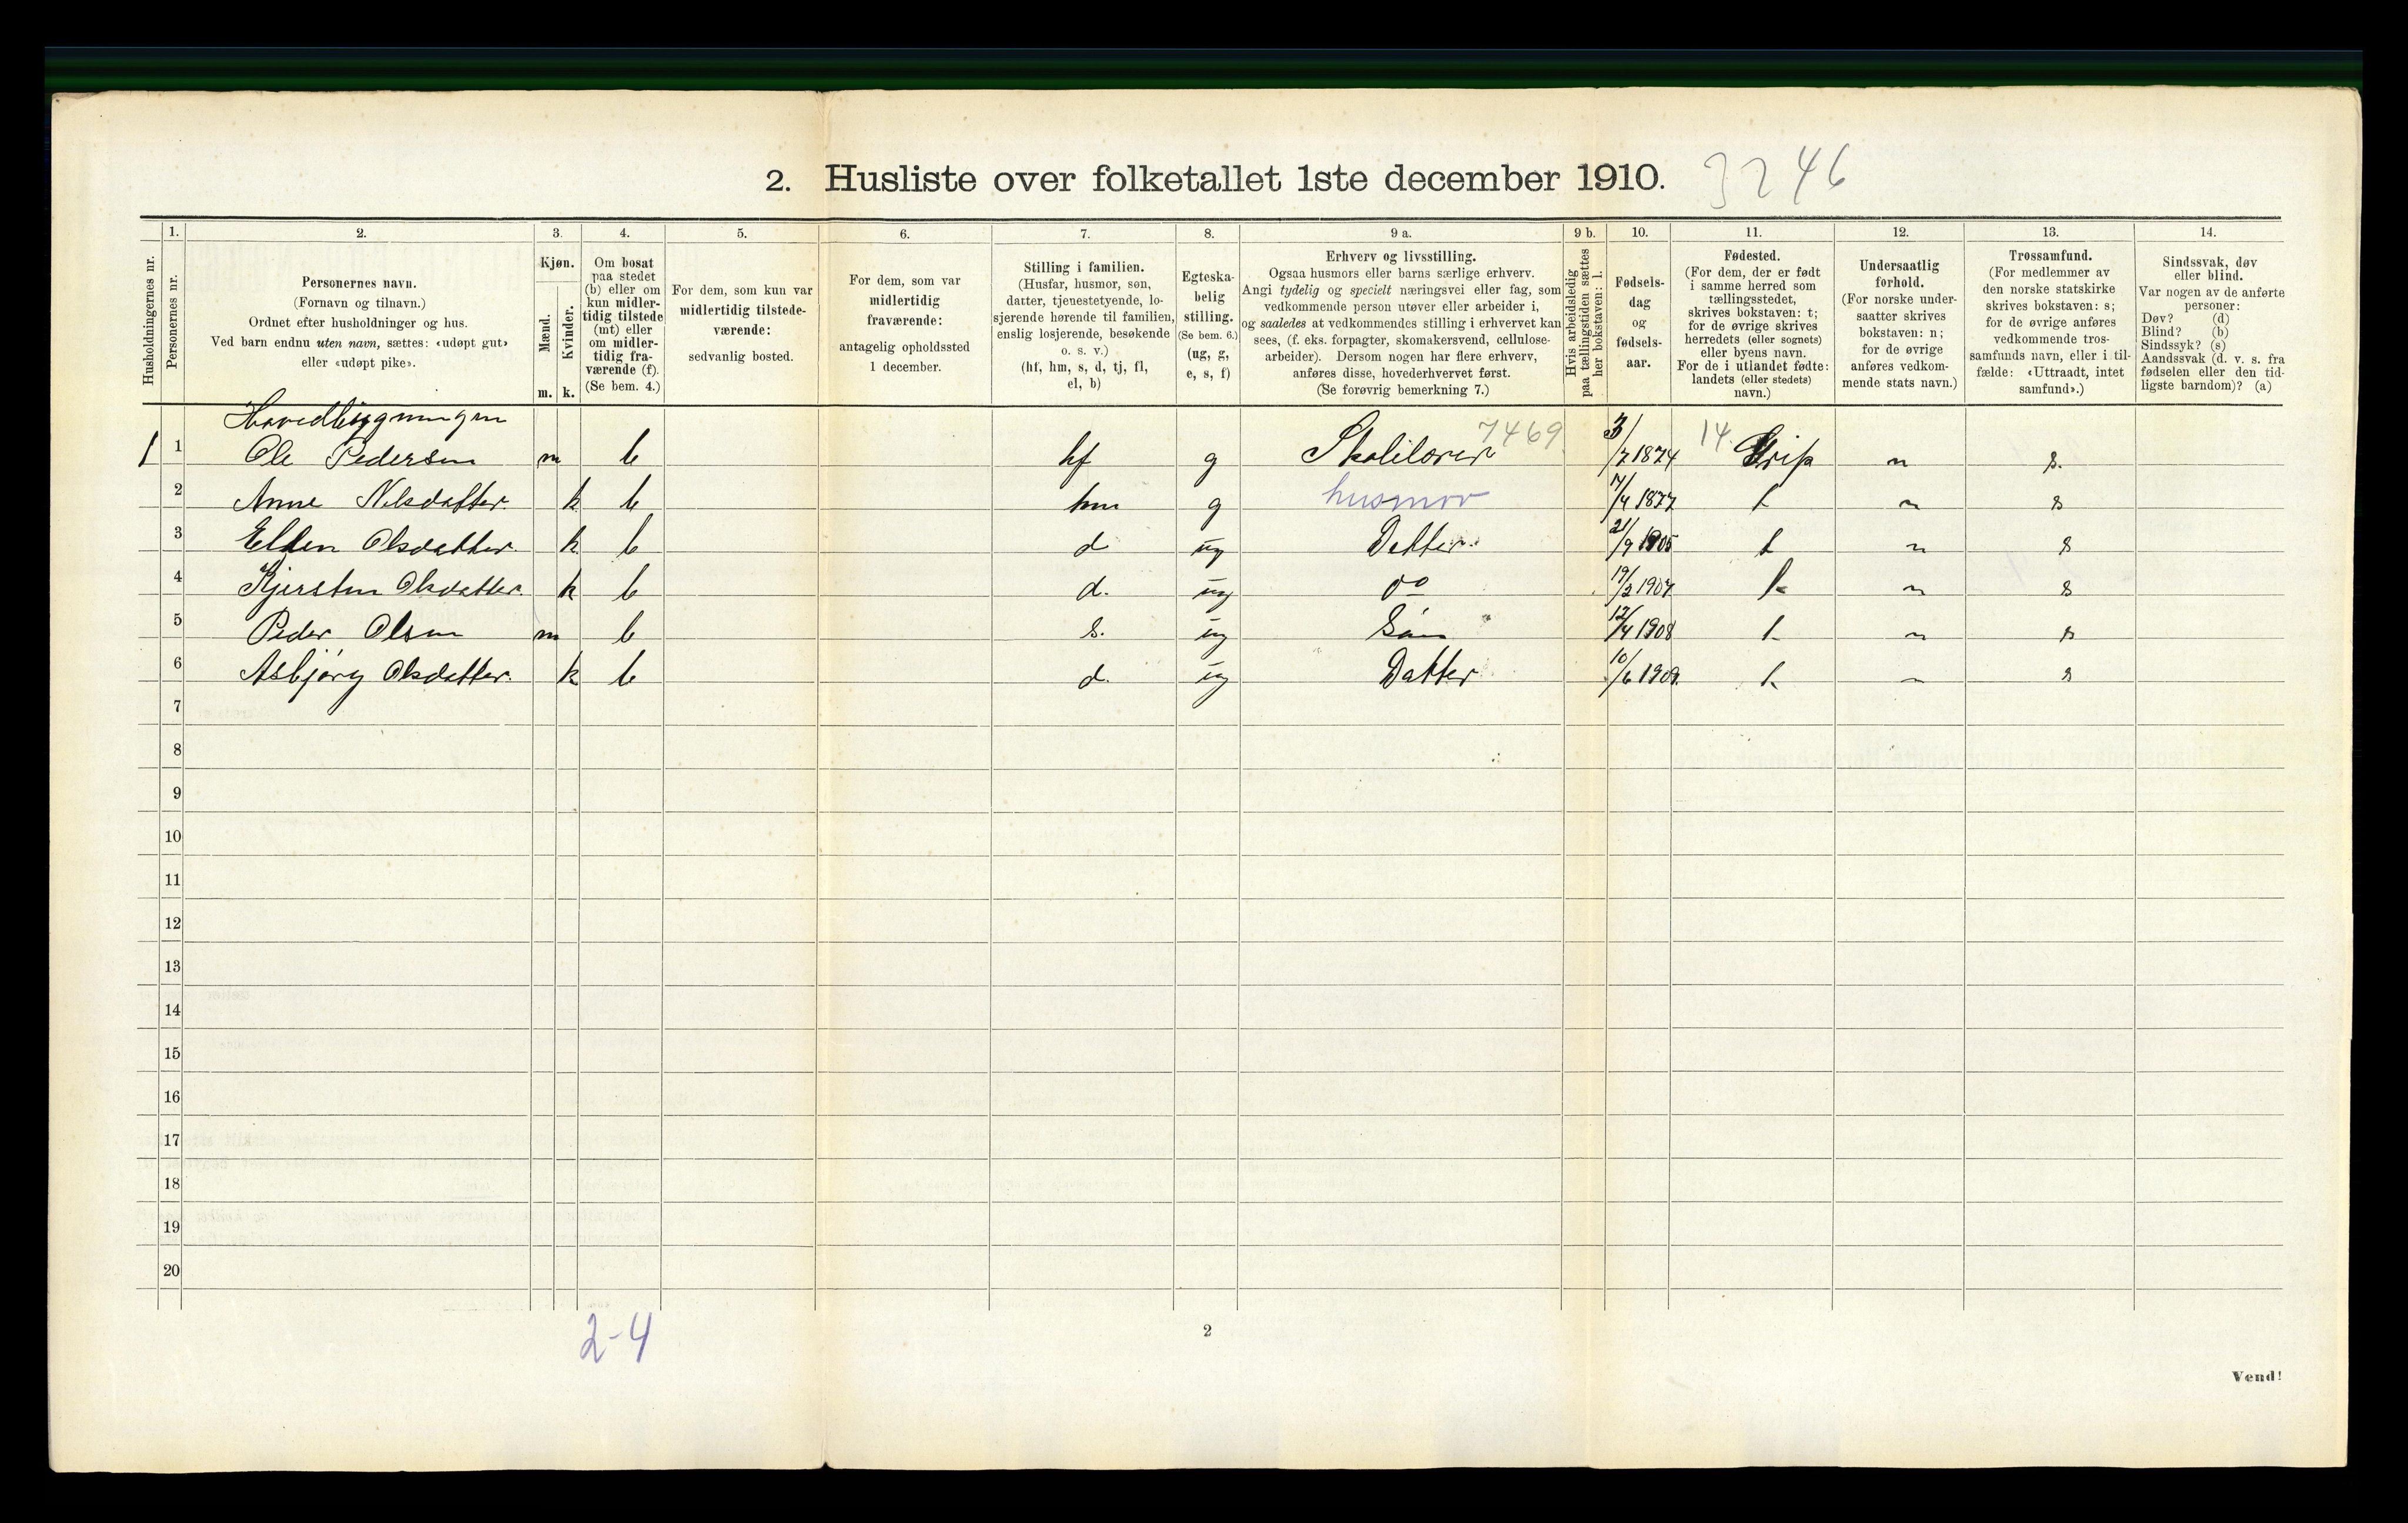 2. Husliste over folketallet 1ste december 1910. 3246
Husholdningernes nr.
1.
Personernes nr.
2.
Personernes navn.
(Fornavn og tilnavn.)
Ordnet efter husholdninger og hus.
Ved barn endnu uten navn, sættes: «udøpt gut»
eller «udøpt pike».
3.
Kjøn.
Mænd.
m.
Kvinder.
k.
4.
Om bosat
paa stedet
(b) eller om
kun midler-
tidig tilstede
(mt) eller
om midler-
tidig fra-
værende (f).
(Se bem. 4.)
5.
For dem, som kun var
midlertidig tilstede-
værende:
sedvanlig bosted.
6.
For dem, som var
midlertidig
fraværende:
antagelig opholdssted
1 december.
7.
Stilling i familien.
(Husfar, husmor, søn,
datter, tjenestetyende, lo-
sjerende hørende til familien,
enslig losjerende, besøkende
o. s. v.)
(hf, hm, s, d, tj, fl,
el, b)
8.
Egteska-
belig
stilling.
(Se bem. 6.)
(ug, g,
e, s, f)
9 a.
Erhverv og livsstilling.
Ogsaa husmors eller barns særlige erhverv.
Angi tydelig og specielt næringsvei eller fag, som
vedkommende person utøver eller arbeider i,
og saaledes at vedkommendes stilling i erhvervet kan
sees, (f. eks. forpagter, skomakersvend, cellulose-
arbeider). Dersom nogen har flere erhverv,
anføres disse, hovederhvervet først.
(Se forøvrig bemerkning 7.)
9 b.
Hvis arbeidsledig
paa tællingstiden sættes
her bokstaven: l.
10.
Fødsels-
dag
og
fødsels-
aar.
11.
Fødested.
(For dem, der er født
i samme herred som
tællingsstedet,
skrives bokstaven: t;
for de øvrige skrives
herredets (eller sognets)
eller byens navn.
For de i utlandet fødte:
landets (eller stedets)
navn.)
12.
Undersaatlig
forhold.
(For norske under-
saatter skrives
bokstaven: n;
for de øvrige
anføres vedkom-
mende stats navn.)
13.
Trossamfund.
(For medlemmer av
den norske statskirke
skrives bokstaven: s;
for de øvrige anføres
vedkommende tros-
samfunds navn, eller i til-
fælde: «Uttraadt, intet
samfund».)
14.
Sindssvak, døv
eller blind.
Var nogen av de anførte
personer:
Døv? (d)
Blind? (b)
Sindssyk? (s)
Aandssvak (d. v. s. fra
fødselen eller den tid-
ligste barndom)? (a)
Hovedbygningen
1 1 Ole Pedersen m b hf g Skolelærer 7469 3/7 1874 14. Grip n s.
2 Anne Nilsdatter. k b hm g husmor 7/4 1877 t n s
3 Ellen Olsdatter. k b d ug Datter. 21/9 1905 t n s
4 Kjersten Olsdatter. k b d. ug do 19/2 1907 t n s
5 Peder Olsen m b s. ug Søn 12/4 1908 t n s
6 Asbjørg Olsdatter. k b d. ug Datter 10/6 1909. t n s
7
8
9
10
11
12
13
14
15
16
17
18
19
20
2-4
2
Vend!